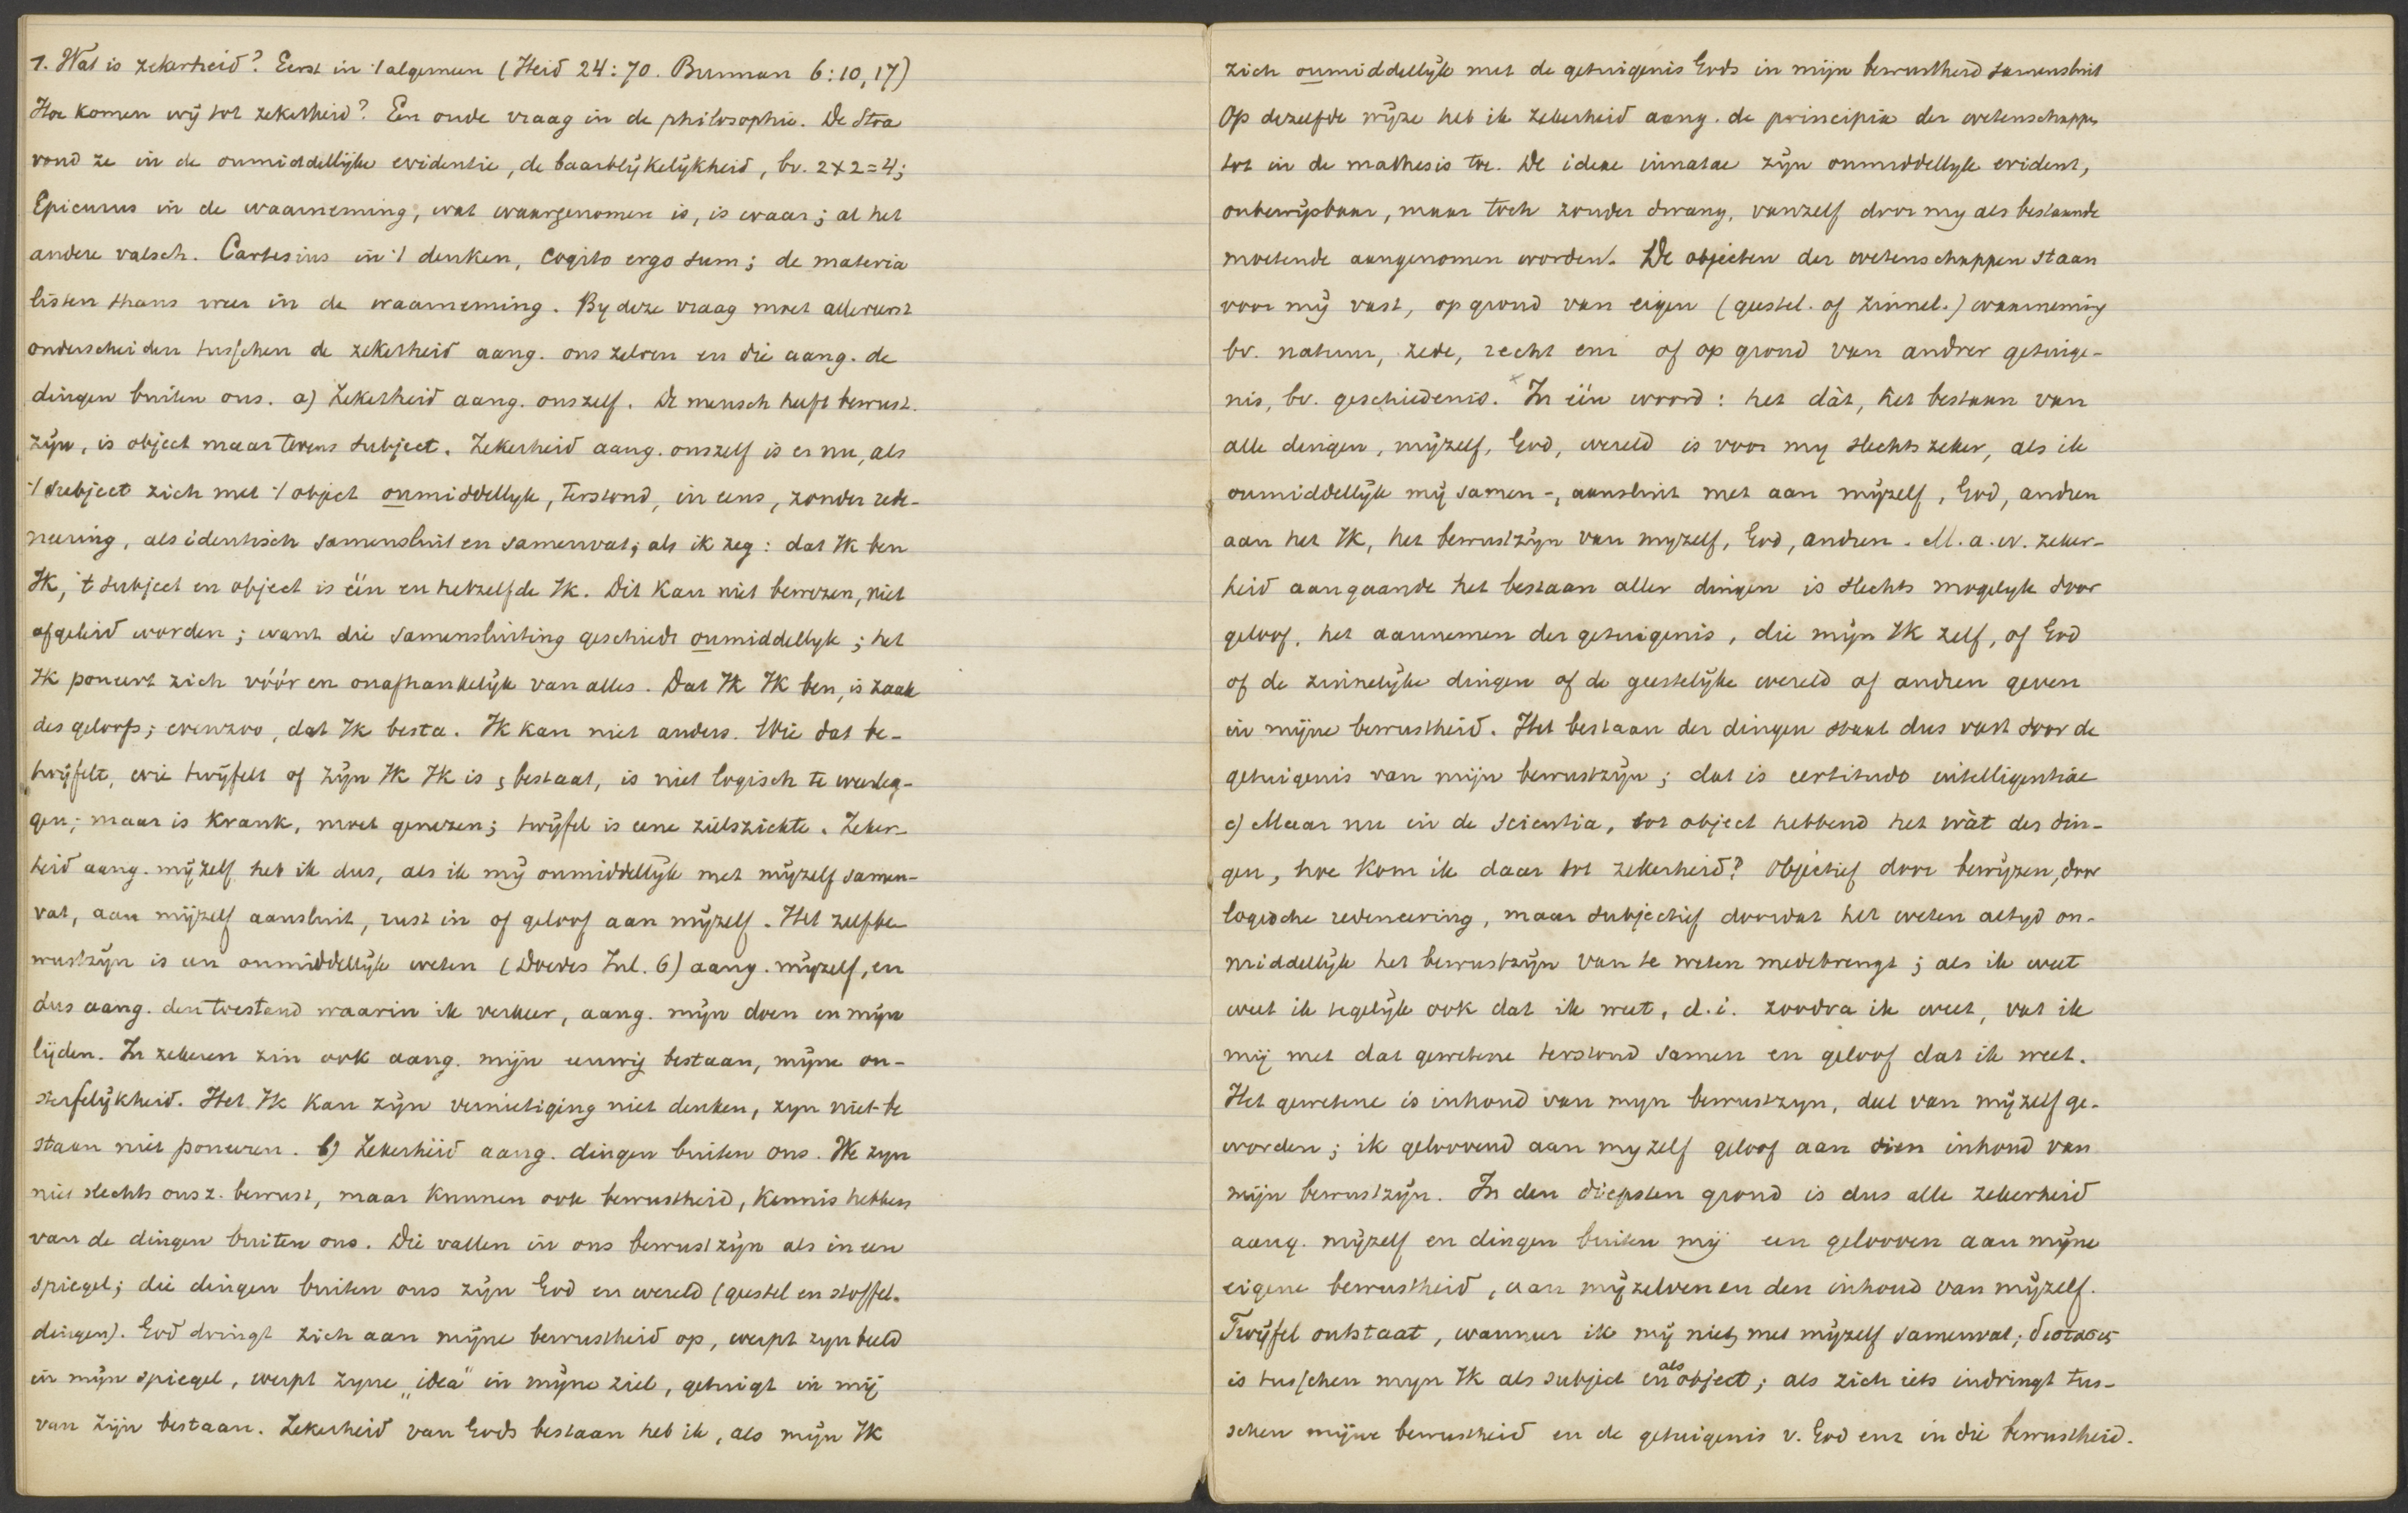 1. Wat is zekerheid? Eerst in 't algemeen (Heid 24:70. Burman 6:10,17)
Hoe komen wij tot zekerheid? Een oude vraag in de philosophie. De Stoa
vond ze in de onmiddellijke evidentie, de baarblijkelijkheid, bv. 2x2=4;
Epicurus in de waarneming, wat waargenomen is, is waar; al het
andere valsch. Cartesius in 't denken, cogito ergo sum; de materia
listen thans weer in de waarneming. By deze vraag moet allereerst
onderscheiden tusschen de zekerheid aang. ons zelven en die aang. de
dingen buiten ons. a) Zekerheid aang. onszelf. De mensch heeft bewust.
zijn, is object maar tevens subject. Zekerheid aang. onszelf is er nu, als
't subject zich met 't object onmiddellyk, terstond, in eens, zonder rede-
neering, als identisch samensluit en samenvat; als ik zeg: dat Ik ben
Ik, 't subject en object is één en hetzelfde Ik. Dit kan niet bewezen, niet
afgeleid worden; want die samensluiting geschiedt onmiddellyk; het
Ik poneert zich vóór en onafhankelijk van alles. Dat Ik Ik ben, is zaak
des geloofs; evenzoo, dat Ik besta. Ik kan niet anders. Wie dat be-
twijfelt, wie twijfelt of zijn Ik Ik is, bestaat, is niet logisch te weerleg-
gen; maar is krank, moet genezen; twijfel is eene zielsziekte. Zeker
heid aang. mijzelf heb ik dus, als ik mij onmiddellijk met mijzelf samen-
vat, aan mijzelf aansluit, rust in of geloof aan mijzelf. Het zelfbe
wustzijn is een onmiddellijk weten (Doedes Inl. 6) aang. mijzelf, en
dus aang. den toestand waarin ik verkeer, aang. mijn doen en mijn
lijden. In zekeren zin ook aang. mijn eeuwig bestaan, mijne on-
sterfelijkheid. Het Ik kan zijn vernietiging niet denken, zyn niet-be
staan niet poneeren. b) Zekerheid aang. dingen buiten ons. We zyn
niet slechts ons z. bewust, maar kunnen ook bewustheid, kennis hebben
van de dingen buiten ons. Die vallen in ons bewustzijn als in een
spiegel; die dingen buiten ons zijn God en wereld (geestel en stoffel.
dingen). God dringt zich aan mijne bewustheid op, werpt zyn beeld
in mijn spiegel, werpt zyne „idea" in mijne ziel, getuigt in mij
van zijn bestaan. Zekerheid van Gods bestaan heb ik, als mijn Ik
zich onmiddellijk met de getuigenis Gods in mijn bewustheid samensluit
Op dezelfde wijze heb ik zekerheid aang. de principia der wetenschappen
tot in de mathesis toe. De ideae innatae zijn onmiddellyk evident,
onbewijsbaar, maar toch zonder dwang, vanzelf door my als bestaande
moetende aangenomen worden. De objecten der wetenschappen staan
voor mij vast, op grond van eigen (geestel. of zinnel.) waarneming
bv. natuur, zede, recht enz of op grond van andrer getuige-
nis, bv. geschiedenis. x In één woord: het dàt, het bestaan van
alle dingen, mijzelf, God, wereld is voor my slechts zeker, als ik
onmiddellijk mij samen-, aansluit met aan mijzelf, God, andren
aan het Ik, het bewustzijn van myzelf, God, andren. M.a.w. zeker-
heid aangaande het bestaan aller dingen is slechts mogelyk door
geloof, het aannemen der getuigenis, die mijn Ik zelf, of God
of de zinnelijke dingen of de geestelijke wereld of andren geven
in mijne bewustheid. Het bestaan der dingen staat dus vast door de
getuigenis van mijn bewustzijn; dat is certitudo intelligentiae
c) Maar nu in de scientia, tot object hebbend het wàt der din-
gen, hoe kom ik daar tot zekerheid? Objectief door bewijzen, door
logische redeneering, maar subjectief doordat het weten altyd on-
middellijk het bewustzijn van te weten medebrengt; als ik weet
weet ik tegelijk ook dat ik weet, d.i. zoodra ik weet, vat ik
mij met dat gewetene terstond samen en geloof dat ik weet.
Het gewetene is inhoud van myn bewustzyn, deel van mijzelf ge-
worden; ik geloovend aan myzelf geloof aan dien inhoud van
mijn bewustzijn. In den diepsten grond is dus alle zekerheid
aang. mijzelf en dingen buiten mij een gelooven aan mijne
eigene bewustheid, aan mijzelven en den inhoud van mijzelf.
Twijfel ontstaat, wanneer ik mij niet met mijzelf samenvat; διστασις
is tusschen myn Ik als subject en als object; als zich iets indringt tus-
schen mijne bewustheid en de getuigenis v. God enz in die bewustheid.